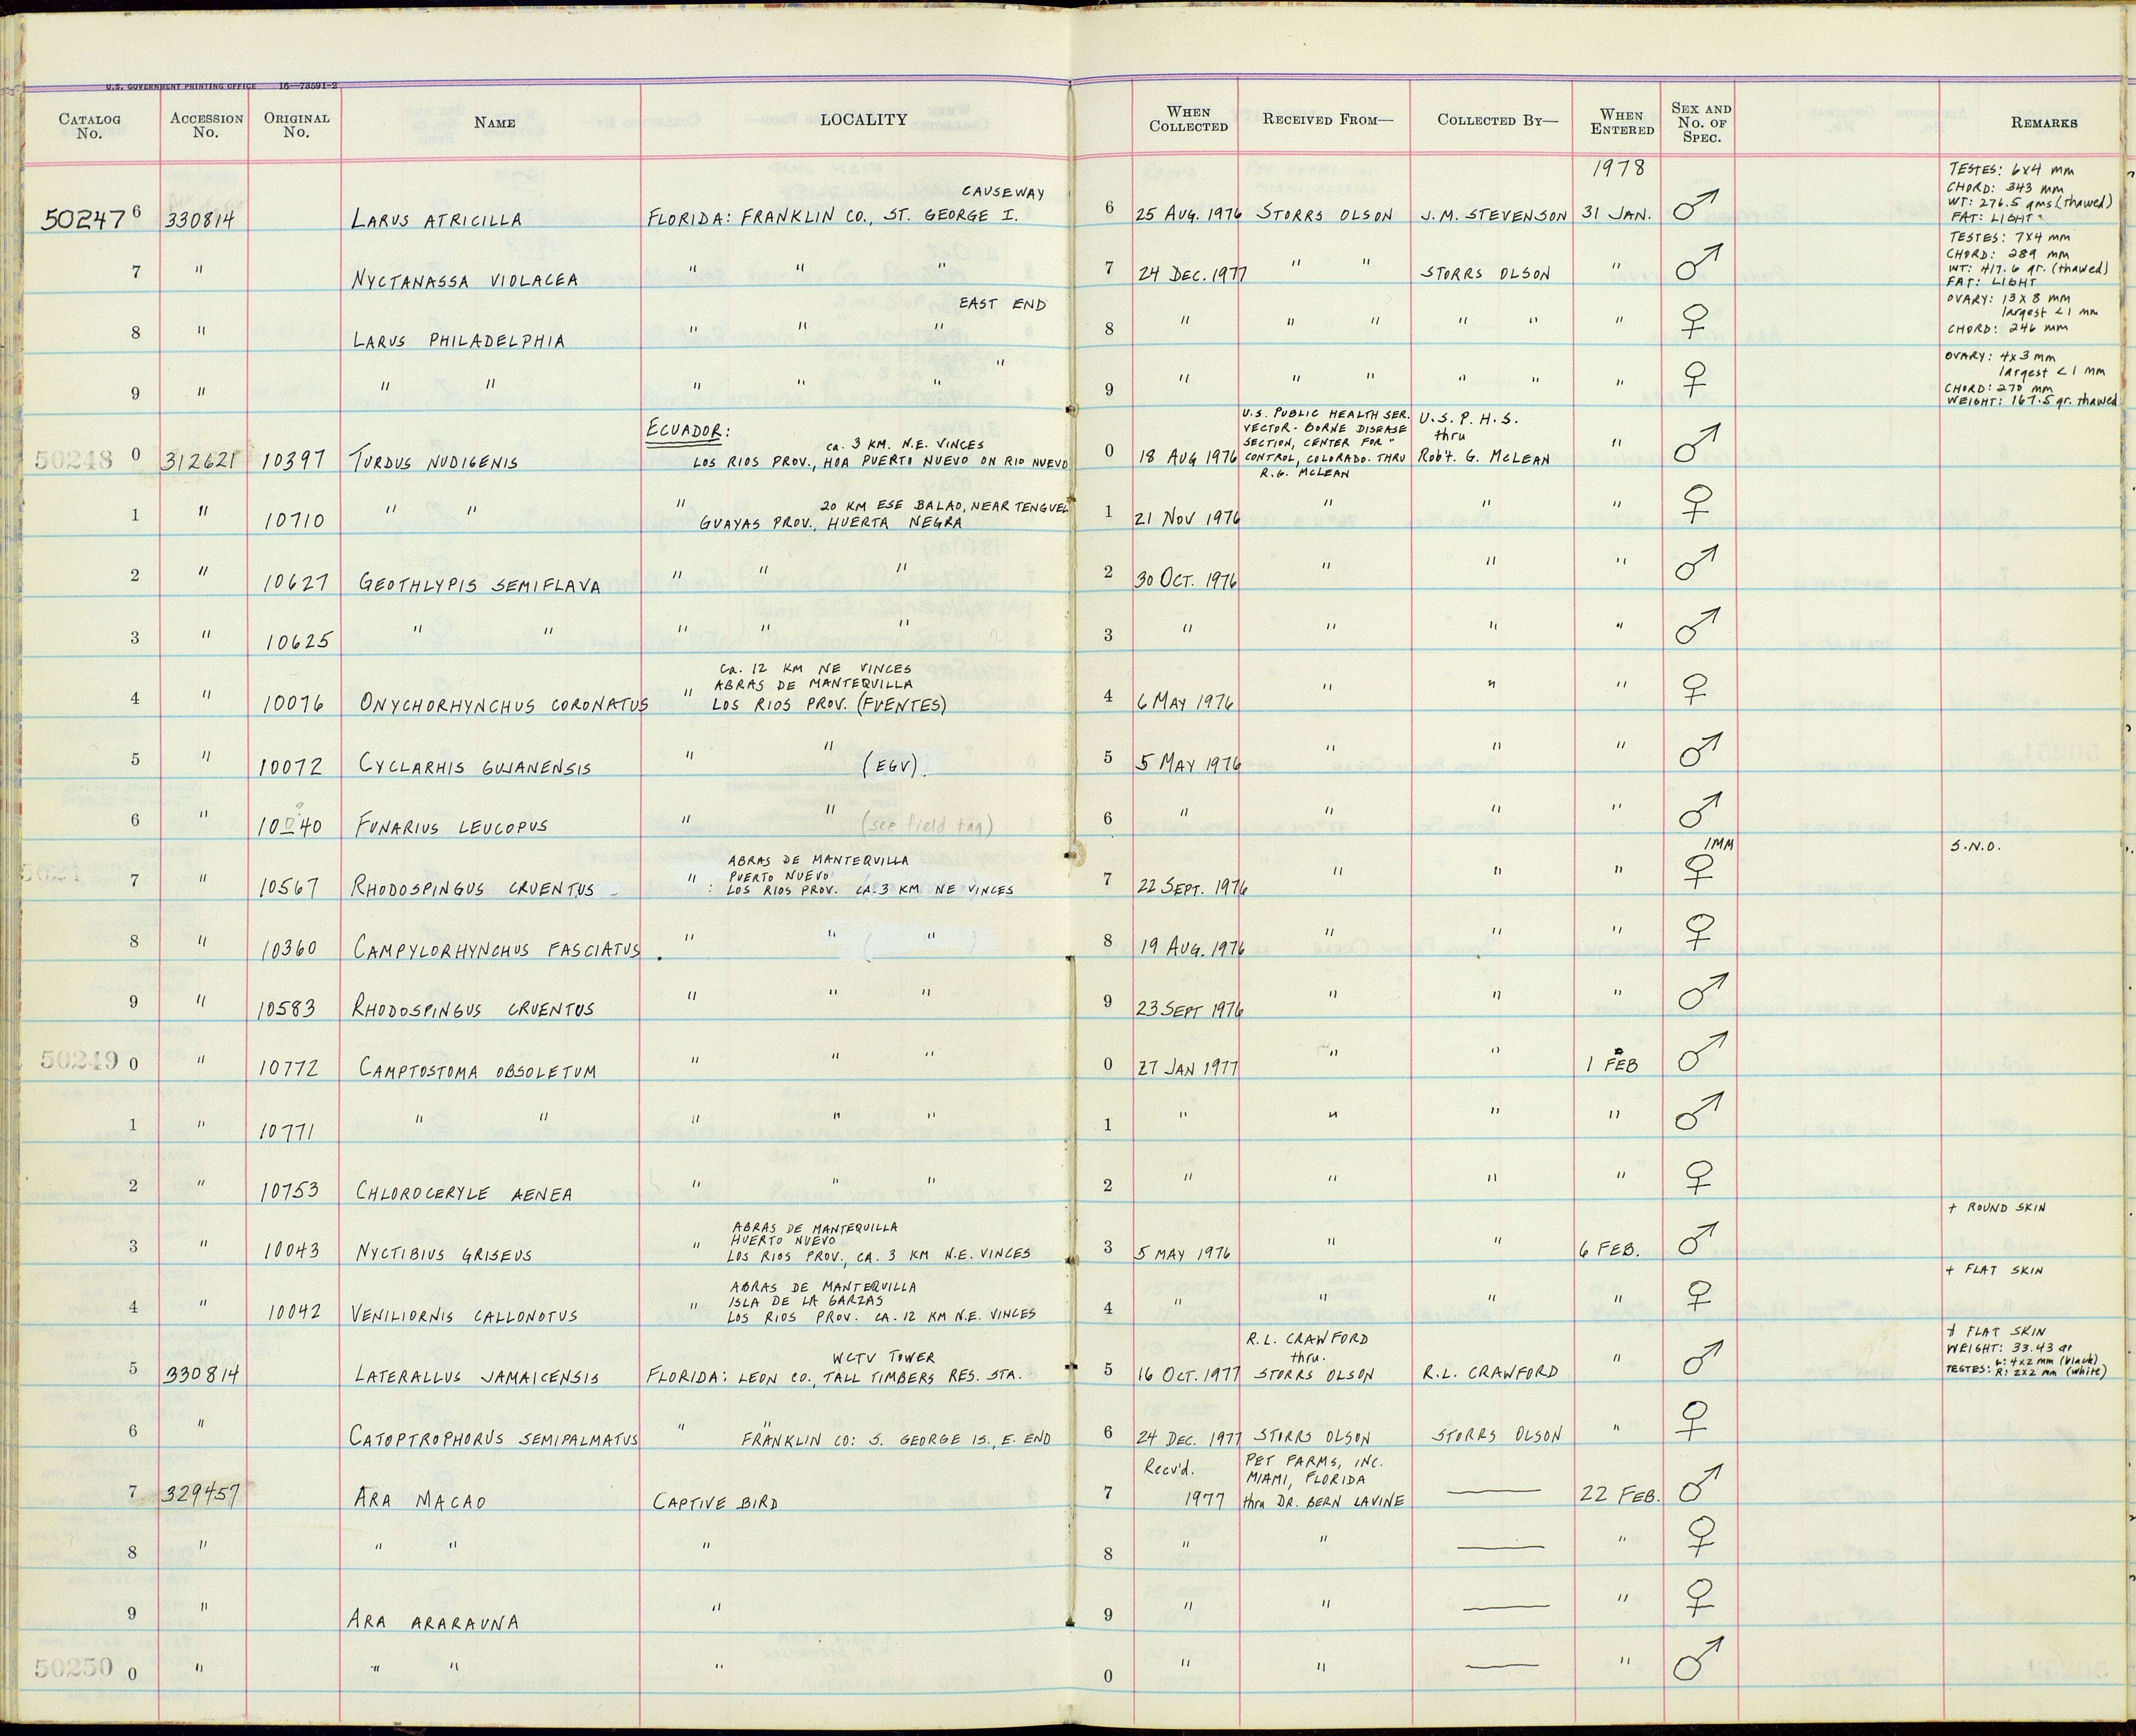 U.S. GOVERNMENT PRINTING OFFICE 16—73591-2
CATALOG No. ACCESSION No. ORIGINAL No. NAME LOCALITY WHEN COLLECTED RECEIVED FROM— COLLECTED BY— WHEN ENTERED SEX AND No. OF SPEC. REMARKS
1978
TESTES: 6x4 mm
CHORD: 343 mm
WT: 276.5 gms (thawed)
FAT: LIGHT
CAUSEWAY
50247 6 330814 LARUS ATRICILLA FLORIDA: FRANKLIN CO., ST. GEORGE I. 6 25 AUG. 1976 STORRS OLSON J.M. STEVENSON 31 JAN. ♂
TESTES: 7x4 mm
CHORD: 289 mm
WT: 417.6 gr. (thawed)
FAT: LIGHT
7 " NYCTANASSA VIOLACEA " " " 7 24 DEC. 1977 " " STORRS OLSON " ♂
EAST END
OVARY: 13x8 mm
largest <1 mm
CHORD: 246 mm
8 " LARUS PHILADELPHIA " " " 8 " " " " " " ♀
"
OVARY: 4x3 mm
largest <1 mm
CHORD: 270 mm
WEIGHT: 167.5 gr. thawed
9 " " " " " " 9 " " " " " " ♀
ECUADOR:
ca. 3 KM. N.E. VINCES
U.S. PUBLIC HEALTH SER.
VECTOR-BORNE DISEASE
SECTION, CENTER FOR "
CONTROL, COLORADO. THRU
R.G. MCLEAN
U.S.P.H.S.
thru
Rob't. G. MCLEAN
50248 0 312621 10397 TURDUS NUDIGENIS LOS RIOS PROV., HDA PUERTO NUEVO ON RIO NUEVO 0 18 AUG 1976 " ♂
20 KM ESE BALAO, NEAR TENGUEL
1 " 10710 " " " GUAYAS PROV., HUERTA NEGRA 1 21 NOV 1976 " " " ♀
2 " 10627 GEOTHLYPIS SEMIFLAVA " " " 2 30 OCT. 1976 " " " ♂
3 " 10625 " " " " " 3 " " " " ♂
Ca. 12 KM NE VINCES
ABRAS DE MANTEQUILLA
4 " 10076 ONYCHORHYNCHUS CORONATUS " LOS RIOS PROV. (FUENTES) 4 6 MAY 1976 " " " ♀
5 " 10072 CYCLARHIS GUJANENSIS " " (EGV). 5 5 MAY 1976 " " " ♂
6 " 10040 FUNARIUS LEUCOPUS " " (see field tag) 6 " " " " ♂
ABRAS DE MANTEQUILLA
PUERTO NUEVO
1MM
S.N.O.
7 " 10567 RHODOSPINGUS CRUENTUS " : LOS RIOS PROV. CA. 3 KM NE VINCES 7 22 SEPT. 1976 " " " ♀
8 " 10360 CAMPYLORHYNCHUS FASCIATUS . " " ( " ) 8 19 AUG. 1976 " " " ♀
9 " 10583 RHODOSPINGUS CRUENTUS " " " 9 23 SEPT 1976 " " " ♂
50249 0 " 10772 CAMPTOSTOMA OBSOLETUM " " " 0 27 JAN 1977 " " 1 FEB ♂
1 " 10771 " " " " " 1 " " " " ♂
2 " 10753 CHLOROCERYLE AENEA " " " 2 " " " " ♀
ABRAS DE MANTEQUILLA
HUERTO NUEVO
+ ROUND SKIN
3 " 10043 NYCTIBIUS GRISEUS " LOS RIOS PROV., CA. 3 KM N.E. VINCES 3 5 MAY 1976 " " 6 FEB. ♂
ABRAS DE MANTEQUILLA
ISLA DE LA GARZAS
+ FLAT SKIN
4 " 10042 VENILIORNIS CALLONOTUS " LOS RIOS PROV. CA. 12 KM N.E. VINCES 4 " " " " ♀
WCTV TOWER
R.L. CRAWFORD
thru.
+ FLAT SKIN
WEIGHT: 33.43 gr
TESTES: L: 4x2 mm (black)
R: 2x2 mm (white)
5 330814 LATERALLUS JAMAICENSIS FLORIDA: LEON CO., TALL TIMBERS RES. STA. 5 16 OCT. 1977 STORRS OLSON R.L. CRAWFORD " ♂
6 " CATOPTROPHORUS SEMIPALMATUS " " FRANKLIN CO: S. GEORGE IS., E. END 6 24 DEC. 1977 STORRS OLSON STORRS OLSON " ♀
Recv'd. PET FARMS, INC.
MIAMI, FLORIDA
7 329457 ARA MACAO CAPTIVE BIRD 7 1977 thru DR. BERN LAVINE — 22 FEB. ♂
8 " " " " 8 " " — " ♀
9 " ARA ARARAUNA " 9 " " — " ♀
50250 0 " " " " 0 " " — " ♂